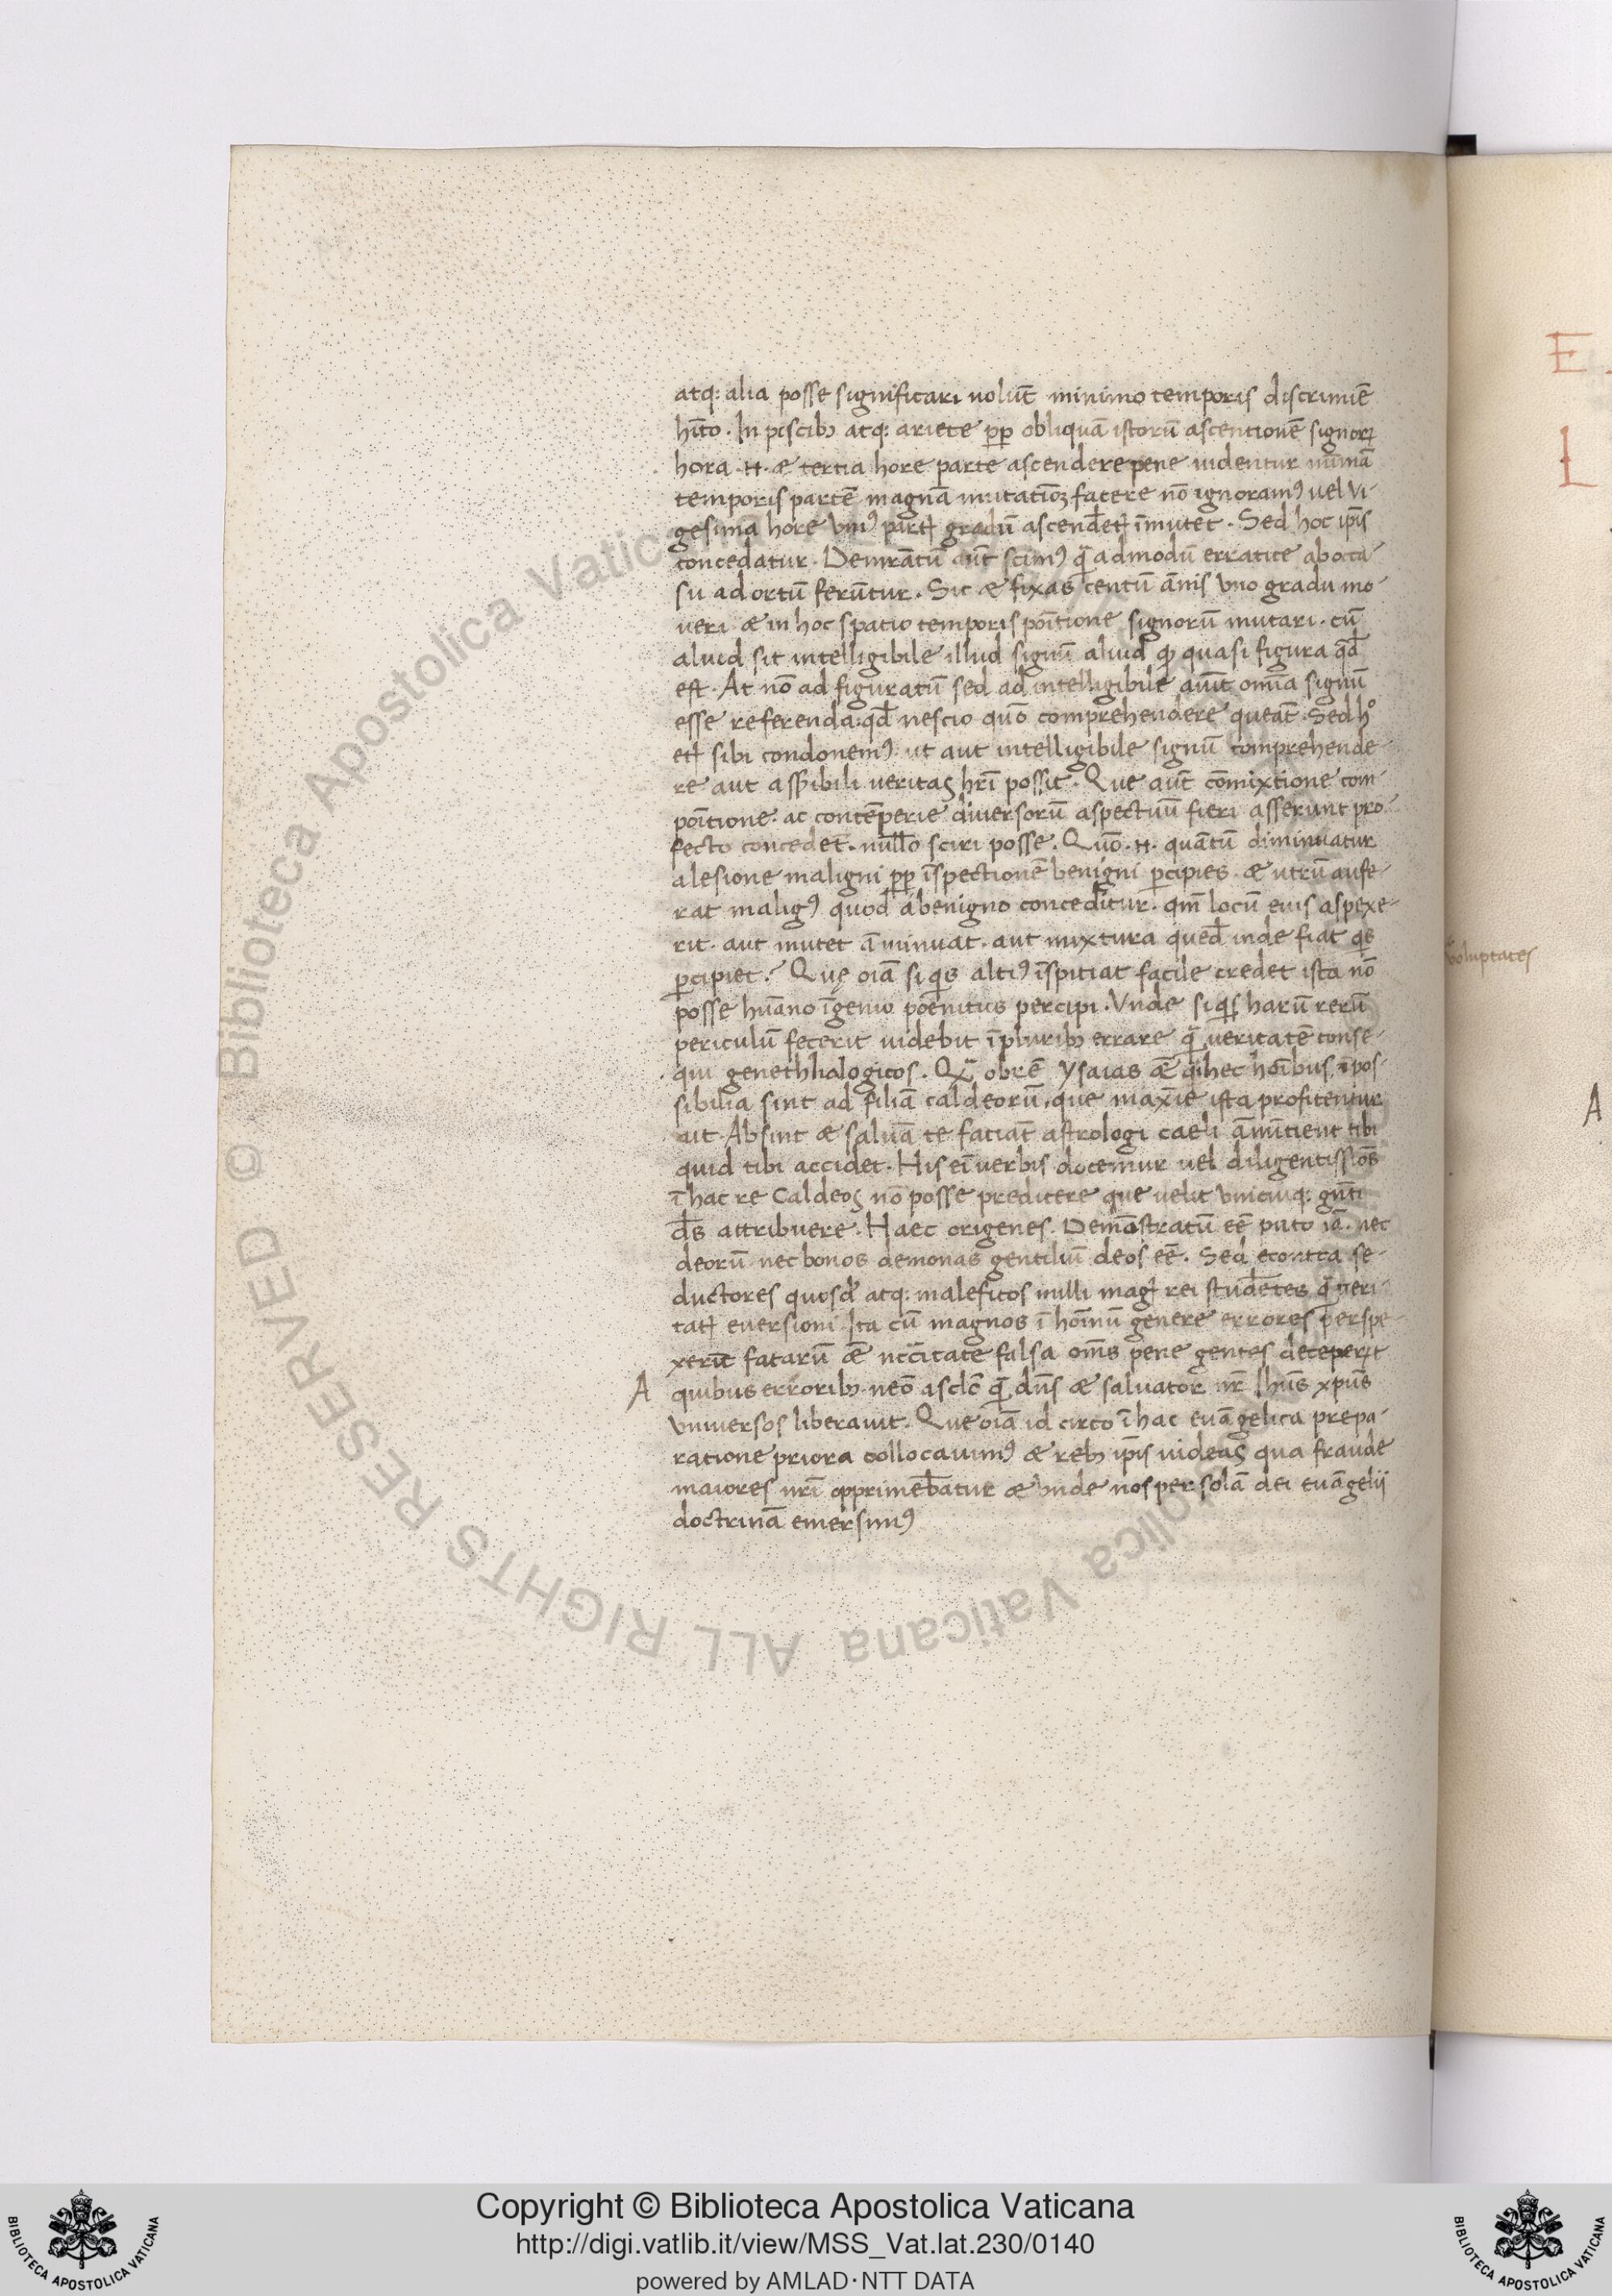 atq: alia posse significari uolūt minimo temporis discrimiē
hīto. In piscib; atq: ariete ꝓp obliquā istorū ascentionē signoꝝ
hora .n. & tertia hore parte ascendere pene uidentur
temporis partē magnā mutatiōꝫ facere nō ignoramꝰ uel vi-
gesima hore vniꝰ gradū ascendētꝭ īmutet. Sed hoc ip̄is
concedatur. aūt scimꝰ q̄ admodū erratice ab occa-
su ad ortū ferūntur. Sic & fixas centū ānis vno gradu mo-
ueri & in hoc spatio temporis poītione signorū mutari. cū
aluid sit intelligibile illud signū aluid quasi figura qd̄
est. At nō ad figuratū sed ad intelligibile aiūt omīa signū
esse referenda: qd̄ nescio quō comprehendere queāt. Sed hº
etꝭ sibi condonemꝰ. ut aut intelligibile signū comprehende-
re aut hr̄i possit. Que aūt cōmixtione com-
poītione. ac contēperie diuersorū aspectuū fieri asserunt pro-
fecto concedēt. nullo sciri posse. Quō .n. quātū diminuatur
alesione maligni ꝓp īspectionē benigni ꝑcipies. & utrū aufe-
rat maligꝰ quod a benigno conceditur. qm̄ locū eius aspexe-
rit. aut mutet ā minuat. aut mixtura qued̄ inde fiat qs
ꝑcipiet? Quę oīa si qs altiꝰ īspitiat facile credet ista nō
posse huāno īgenio poenitus percipi. Vnde si qs harū rerū
periculū fecerit uidebit ī plurib; errare q̄ ueritatē conse-
qui genethlialogicos. Qā obrē ysaias hec hoībus īpos-
sibilia sint ad filiā caldeorū. que maxīe ista profitentur
ait. Absint & saluā te faciāt astrologi caeli ānūtient tibi
quid tibi accidet. His eī uerbis docemur uel diligentissīos
ī hac re Caldeos nō posse predicere que uelit vnicuiq: gn̄ti
ds attribuere. Haec origenes. Demōstratū eē puto iā. nec
deorū nec bonos demonas gentiliū deos eē. Sed econtra se-
ductores quosd̄ atq: maleficos nulli magꝭ rei studētes q̄ ueri-
tatꝭ euersioni. Ita cū magnos ī hoīnū genere errores perspe-
xerīt fatarū nec̄citate falsa oms pene gentes deceperūt
A quibus errorib; neō q̄ dn̄s & saluator nr̄ Ihūs xpūs
vniuersos liberauit. Que oīa id circo ī hac euāgelica prepa-
ratione priora collocauimꝰ & reb; ip̄is uideas qua fraude
maiores nr̄i opprimebātur & vnde nos per solā dei euāgelij
doctrinā emersimꝰ
voluptates
E
L
A
Copyright © Biblioteca Apostolica Vaticana
http://digi.vatlib.it/view/MSS_Vat.lat.230/0140
powered by AMLAD·NTT DATA
BIBLIOTECA APOSTOLICA VATICANA
BIBLIOTECA APOSTOLICA VATICANA
© Biblioteca Apostolica Vaticana ALL RIGHTS RESERVED